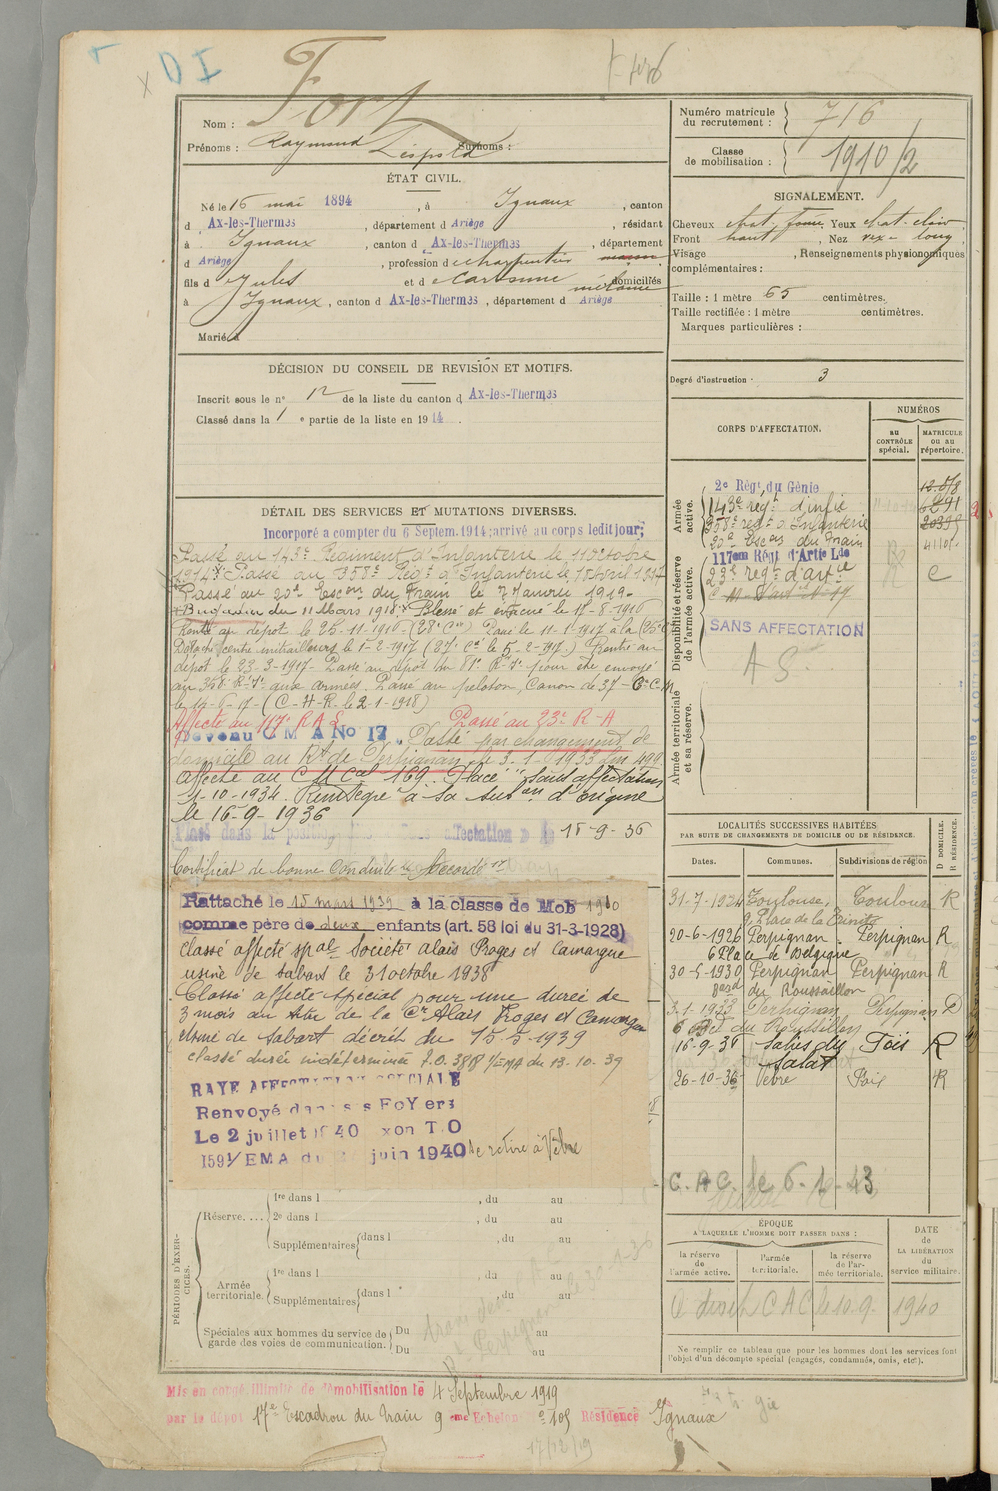 DI
Nom : Fort
Prénoms : Raymond Léopold Surnoms :
ÉTAT CIVIL.
Né le 16 mai 1894, à Ignaux, canton
d Ax-les-Thermes, département d Ariège, résidant
à Ignaux, canton d Ax-les-Thermes, département
d Ariège, profession d charpentier
fils d Jules et d domiciliés
à Ignaux, canton d Ax-les-Thermes, département d Ariège
Marié à
DÉCISION DU CONSEIL DE REVISION ET MOTIFS.
Inscrit sous le n° 12 de la liste du canton d Ax-les-Thermes
Classé dans la 1 e partie de la liste en 1914.
DÉTAIL DES SERVICES ET MUTATIONS DIVERSES.
Incorporé a compter du 6 Septem. 1914; arrivé au corps ledit jour;
Passé au 143e Régiment d'Infanterie le 11 octobre
1914. Passé au 358e Rég. d'Infanterie le
Passé au 20e Escon du Train le 7 Janvier 1919.
Brigadier du 11 Mars 1918. Blessé et évacué le 17-8-1916
Rentré au dépot le 25-11-1916 (28e Cie) Passé le 11-1-1917 à la
Détaché centre mitrailleurs le 1-2-1917 (27e Cie le 5-2-1917.) Rentré au
dépot le 23-3-1917. Passé au dépot du 81e R.I. pour être envoyé
au 358e R.I. aux armées. Passé au peloton, Canon de 37
le 14-6-17 (C-H-R. le 2-1-1918)
Affecté au 117e R A L Passé au 23e R-A
C M A No 17. Passé par changement de
domicile au Rt de Perpignan le 3-1-1933 au 499
affecté au C M Cal 169. Placé "sans affectation
1-10-1934. Réintégré à sa subon d'origine
le 16-9-1936
Placé dans la position affectation le 15-9-36
Certificat de bonne conduite Accordé
Rattaché le 15 mars 1939 à la classe de Mob 1910
comme père de deux enfants (art. 58 loi du 31-3-1928)
Classé affecté spal Société Alais Froges et Camargue
usine de Sabart le 31 octobre 1938
Classé affecté spécial pour une durée de
3 mois au titre de la Cie Alais Froges et Camargue
usine de Sabart décrit du 15-5-1939
classé durée indéterminée I.O. 3818 1/EMA du 13-10-39
RAYE AFFECTATION SPECIALE
Renvoyé dans ses FoYers
Le 2 juillet 1940 T.O
1591/EMA du juin 1940 se retire à Vèbre
PÉRIODES D'EXERCICES.
Réserve....
1re dans l , du au
2e dans l , du au
Supplémentaires dans l , du au
Armée territoriale.
1re dans l , du au
Supplémentaires dans l , du au
Spéciales aux hommes du service de garde des voies de communication.
Du au
Du au
Mis en congé illimité de démobilisation le 4 Septembre 1919
par le dépot 17e Escadron du Train 9 eme Echelon n° 105 Résidence Ignaux
17/12/19
Numéro matricule du recrutement : 716
Classe de mobilisation : 1910/2
SIGNALEMENT.
Cheveux chat. foncé. Yeux chat. clair
Front haut, Nez long
Visage , Renseignements physionomiques
complémentaires :
Taille : 1 mètre 65 centimètres.
Taille rectifiée : 1 mètre centimètres.
Marques particulières :
Degré d'instruction : 3
CORPS D'AFFECTATION.
NUMÉROS
au CONTRÔLE spécial.
MATRICULE ou au répertoire.
Armée active.
2e Régt du Génie
143e régt d'infie 6291
358e régt d'Infanterie
20e Escon du Train
Disponibilité et réserve de l'armée active.
117em Régt d'Artie Lde
23e régt d'artie C
SANS AFFECTATION
A S.
Armée territoriale et sa réserve.
LOCALITÉS SUCCESSIVES HABITÉES
PAR SUITE DE CHANGEMENTS DE DOMICILE OU DE RÉSIDENCE.
Dates. Communes. Subdivisions de région D DOMICILE. R RÉSIDENCE.
31-7-1924 Toulouse, Toulouse R
9 Place de la Trinité
20-6-1926 Perpignan Perpignan R
6 Place de Belgique
30-5-1930 Perpignan Perpignan R
Bard du Roussillon
3-1-1933 Perpignan Perpignan D
6 Bd du Roussillon
16-9-36 Salies du Foix R
Salat
26-10-36 Vèbre Foix R
C.A.C. le 6-1-43
ÉPOQUE
A LAQUELLE L'HOMME DOIT PASSER DANS :
DATE de LA LIBÉRATION du service militaire.
la réserve de l'armée active.
l'armée territoriale.
la réserve de l'armée territoriale.
C A C le 10-9- 1940
Ne remplir ce tableau que pour les hommes dont les services font
l'objet d'un décompte spécial (engagés, condamnés, omis, etc.).